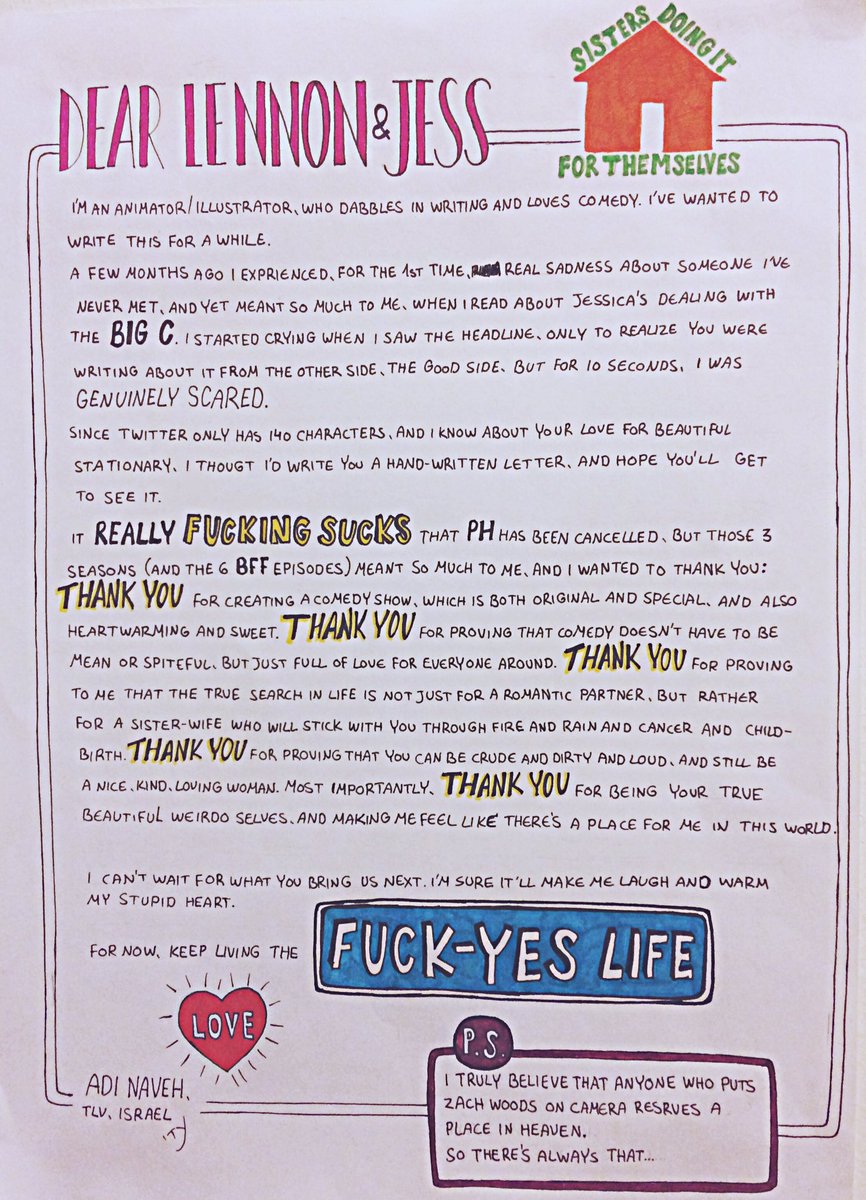 SISTERS DOING IT
FOR THEMSELVES
DEAR LENNON & JESS
I'M AN ANIMATOR/ILLUSTRATOR, WHO DABBLES IN WRITING AND LOVES COMEDY. I'VE WANTED TO
WRITE THIS FOR A WHILE.
A FEW MONTHS AGO I EXPRIENCED, FOR THE 1ST TIME, REAL SADNESS ABOUT SOMEONE I'VE
NEVER MET, AND YET MEANT SO MUCH TO ME, WHEN I READ ABOUT JESSICA'S DEALING WITH
THE BIG C. I STARTED CRYING WHEN I SAW THE HEADLINE, ONLY TO REALIZE YOU WERE
WRITING ABOUT IT FROM THE OTHER SIDE, THE GOOD SIDE. BUT FOR 10 SECONDS, I WAS
GENUINELY SCARED.
SINCE TWITTER ONLY HAS 140 CHARACTERS, AND I KNOW ABOUT YOUR LOVE FOR BEAUTIFUL
STATIONARY, I THOUGT I'D WRITE YOU A HAND-WRITTEN LETTER, AND HOPE YOU'LL GET
TO SEE IT.
IT REALLY FUCKING SUCKS THAT PH HAS BEEN CANCELLED, BUT THOSE 3
SEASONS (AND THE 6 BFF EPISODES) MEANT SO MUCH TO ME, AND I WANTED TO THANK YOU:
THANK YOU FOR CREATING A COMEDY SHOW, WHICH IS BOTH ORIGINAL AND SPECIAL, AND ALSO
HEARTWARMING AND SWEET. THANK YOU FOR PROVING THAT COMEDY DOESN'T HAVE TO BE
MEAN OR SPITEFUL, BUT JUST FULL OF LOVE FOR EVERYONE AROUND. THANK YOU FOR PROVING
TO ME THAT THE TRUE SEARCH IN LIFE IS NOT JUST FOR A ROMANTIC PARTNER, BUT RATHER
FOR A SISTER-WIFE WHO WILL STICK WITH YOU THROUGH FIRE AND RAIN AND CANCER AND CHILD-
BIRTH. THANK YOU FOR PROVING THAT YOU CAN BE CRUDE AND DIRTY AND LOUD, AND STILL BE
A NICE, KIND, LOVING WOMAN. MOST IMPORTANTLY, THANK YOU FOR BEING YOUR TRUE
BEAUTIFUL WEIRDO SELVES, AND MAKING ME FEEL LIKE THERE'S A PLACE FOR ME IN THIS WORLD.
I CAN'T WAIT FOR WHAT YOU BRING US NEXT. I'M SURE IT'LL MAKE ME LAUGH AND WARM
MY STUPID HEART.
FOR NOW, KEEP LIVING THE FUCK-YES LIFE
LOVE
ADI NAVEH,
TLV, ISRAEL
P.S.
I TRULY BELIEVE THAT ANYONE WHO PUTS
ZACH WOODS ON CAMERA RESRVES A
PLACE IN HEAVEN.
SO THERE'S ALWAYS THAT...